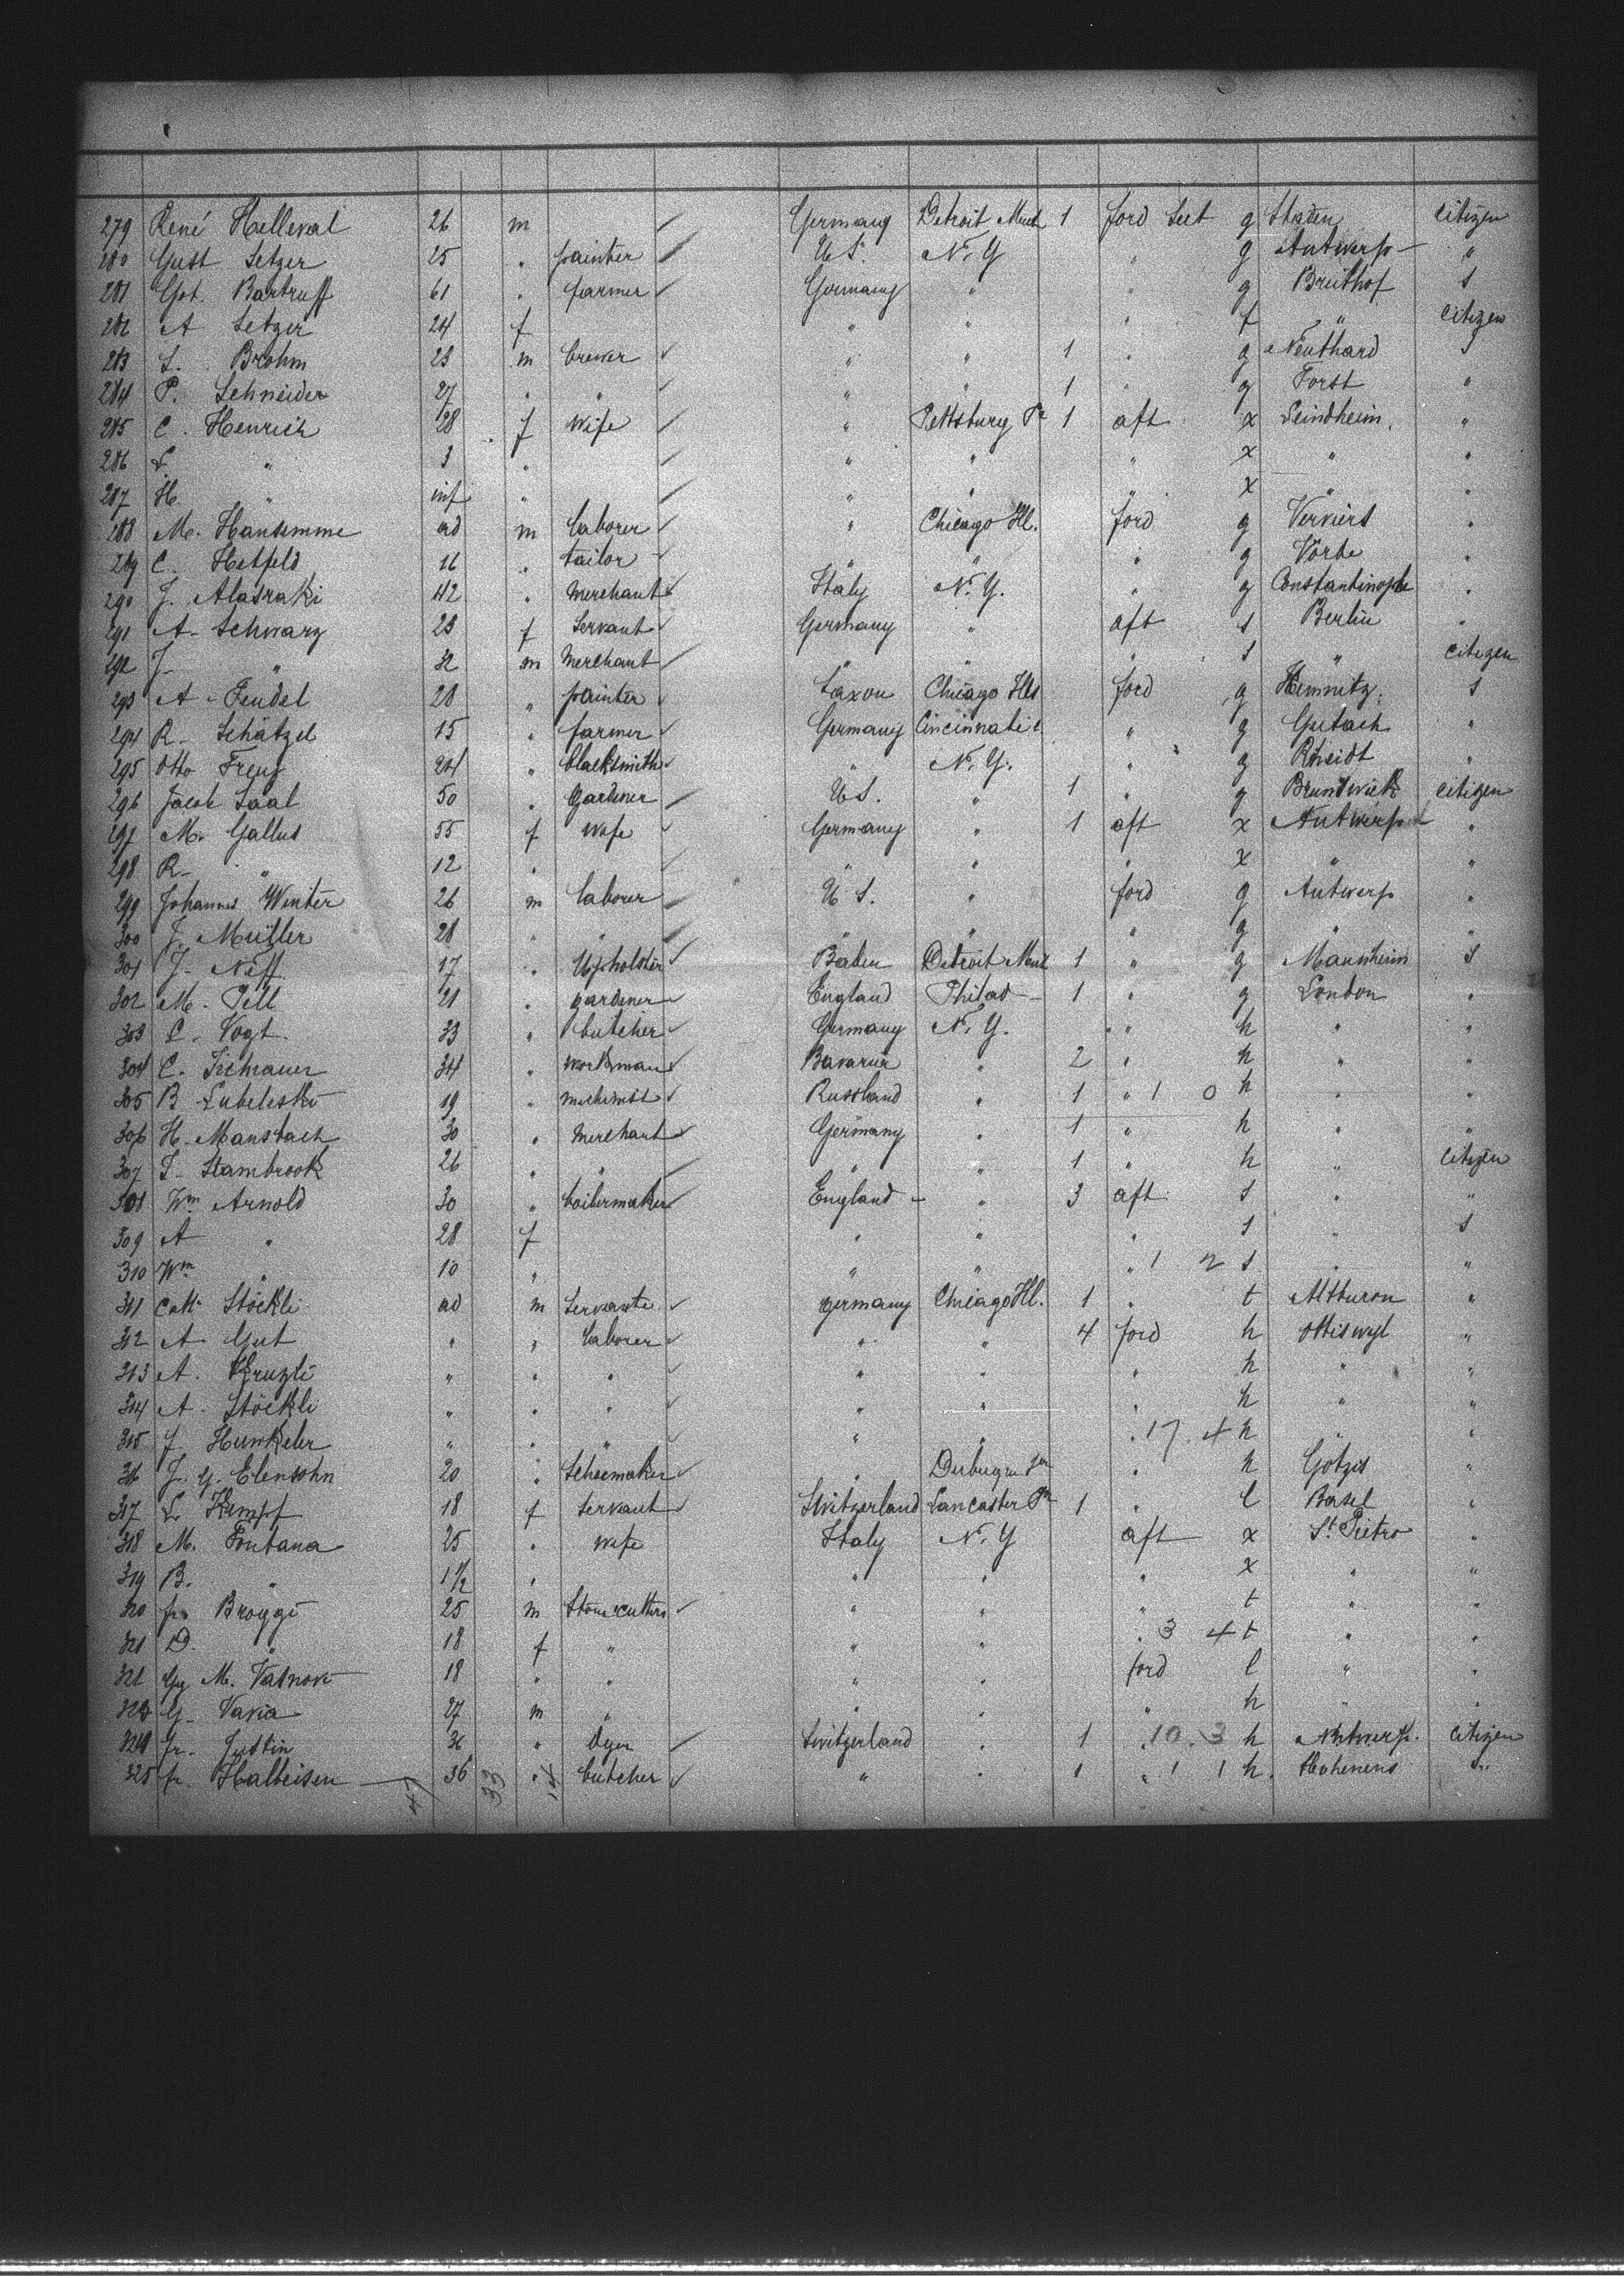 279 René Halleval 26 m Germany Detroit Mich 1 ford g Staden citizen
280 Gust Setzer 25 " painter U S. N. Y " g Antwerp "
281 Got. Bartruff 61 " farmer Germany " " g s
282 A Setzer 24 f " " " t " citizen
283 L. Brohm 23 m brewer " " 1 " g Neuthard s
284 P. Schneider 27 " " " " 1 " g Forst "
285 C. Henrich 28 f wife " Pettsburg Pa 1 aft x Leindheim "
286 L. " 3 " " " " x " "
287 H. " inf " " " " x " "
288 M. Hansemme ad m laborer " Chicago Ill. ford g Verviers "
289 C. Hetfeld 16 " tailor " " " g "
290 J. Alasraki 42 " merchant Italy N. Y. " g Constantinople "
291 A. Schwarz 23 f servant Germany " aft s Berlin "
292 J. " 32 m merchant " " " s " citizen
293 A. Feudel 28 " painter Saxon Chicago Ills ford g s
294 R. Schätzel 15 " farmer Germany Cincinnati " g Gutach "
295 Otto Frey 24 " blacksmith " N. Y. " g Rheidt "
296 Jacob Saal 50 " gardener U S. " 1 " g Brunswick citizen
297 M. Gallus 55 f wife Germany " 1 aft x Antwerp "
298 R. " 12 " " " " x " "
299 Johannes Winter 26 m laborer U S. " ford g Antwerp "
300 J. Müller 28 " " " " " g " "
301 J. Neff 17 " Upholster Baden Detroit Mich 1 " g Mannheim s
302 M. Pell 21 " gardener England Philad 1 " g London "
303 L. Vogt 33 " butcher Germany N. Y. " h " "
304 C. 34 " workman Bavaria " 2 " h " "
305 B Lubeleski 19 " Russland " 1 " 1 0 h " "
306 H. Mansbach 30 " merchant Germany " 1 " h " "
307 S. Stambrook 26 " " " " 1 " h " citizen
308 Wm Arnold 30 " boilermaker England " 3 aft s " "
309 A " 28 f " " " s " s
310 Wm " 10 " " " " 1 2 s " "
311 Cath. Stöckli ad m servante germany Chicago Ill. 1 " t "
312 A. Gut " " laborer " " 4 ford h "
313 A. Kruzli " " " " " " h " "
314 A. Stöckli " " " " " " h " "
315 J. Hunkeler " " " " " " 17 4 h " "
316 J. G. Elensohn 20 " schoemaker " " h Götzis "
317 L Kempf 18 f servant Switzerland Lancaster Pa 1 " l Basel "
318 M. Fontana 25 " wife Italy N. Y aft x St Pietro "
319 B. " 1 1/2 " " " " x " "
320 fr. Broggi 25 m stone cutters " " " t " "
321 D. " 18 f " " " " 3 4 t " "
322 M. 18 " " " " ford l " "
323 G. Varia 27 m " " " " h " "
324 Fr. Justin 36 " dyer Switzerland " 1 " 10 3 h Antwerp. citizen
325 fr. Halbeisen 36 " butcher " " 1 " 1 1 h s
47 33 14